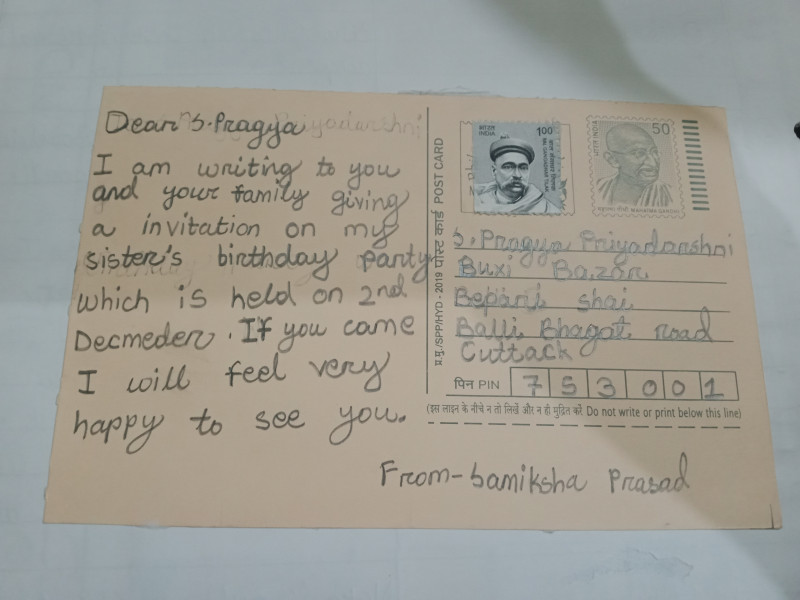 Dear S. Pragya
I am writing to you
and your family giving
a invitation on my
sister's birthday party
which is held on 2nd
Decmeder. If you came
I will feel very
happy to see you.
प्र.मु./SPP/HYD - 2019 पोस्ट कार्ड POST CARD
भारत
INDIA
100
BAL GANGADHAR TILAK
भारत INDIA
50
महात्मा गाँधी MAHATMA GANDHI
S. Pragya Priyadarshni
Buxi Bazar
Beparii shai
Balli Bhagat road
Cuttack
पिन PIN 753001
(इस लाइन के नीचे न तो लिखें और न ही मुद्रित करें Do not write or print below this line)
From- Samiksha Prasad